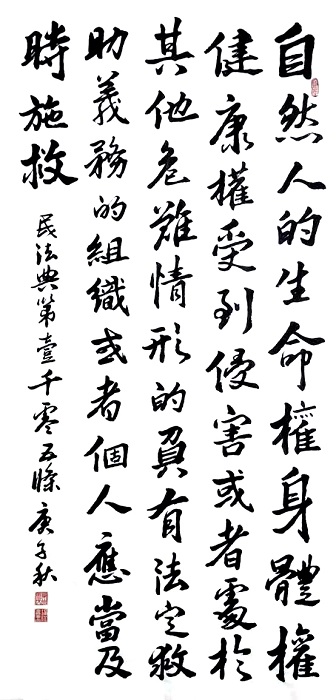 自然人的生命權身體權
健康權受到侵害或者處於
其他危難情形的負有法定救
助義務的組織或者個人應當及
時施救
民法典第壹千零五條庚子秋